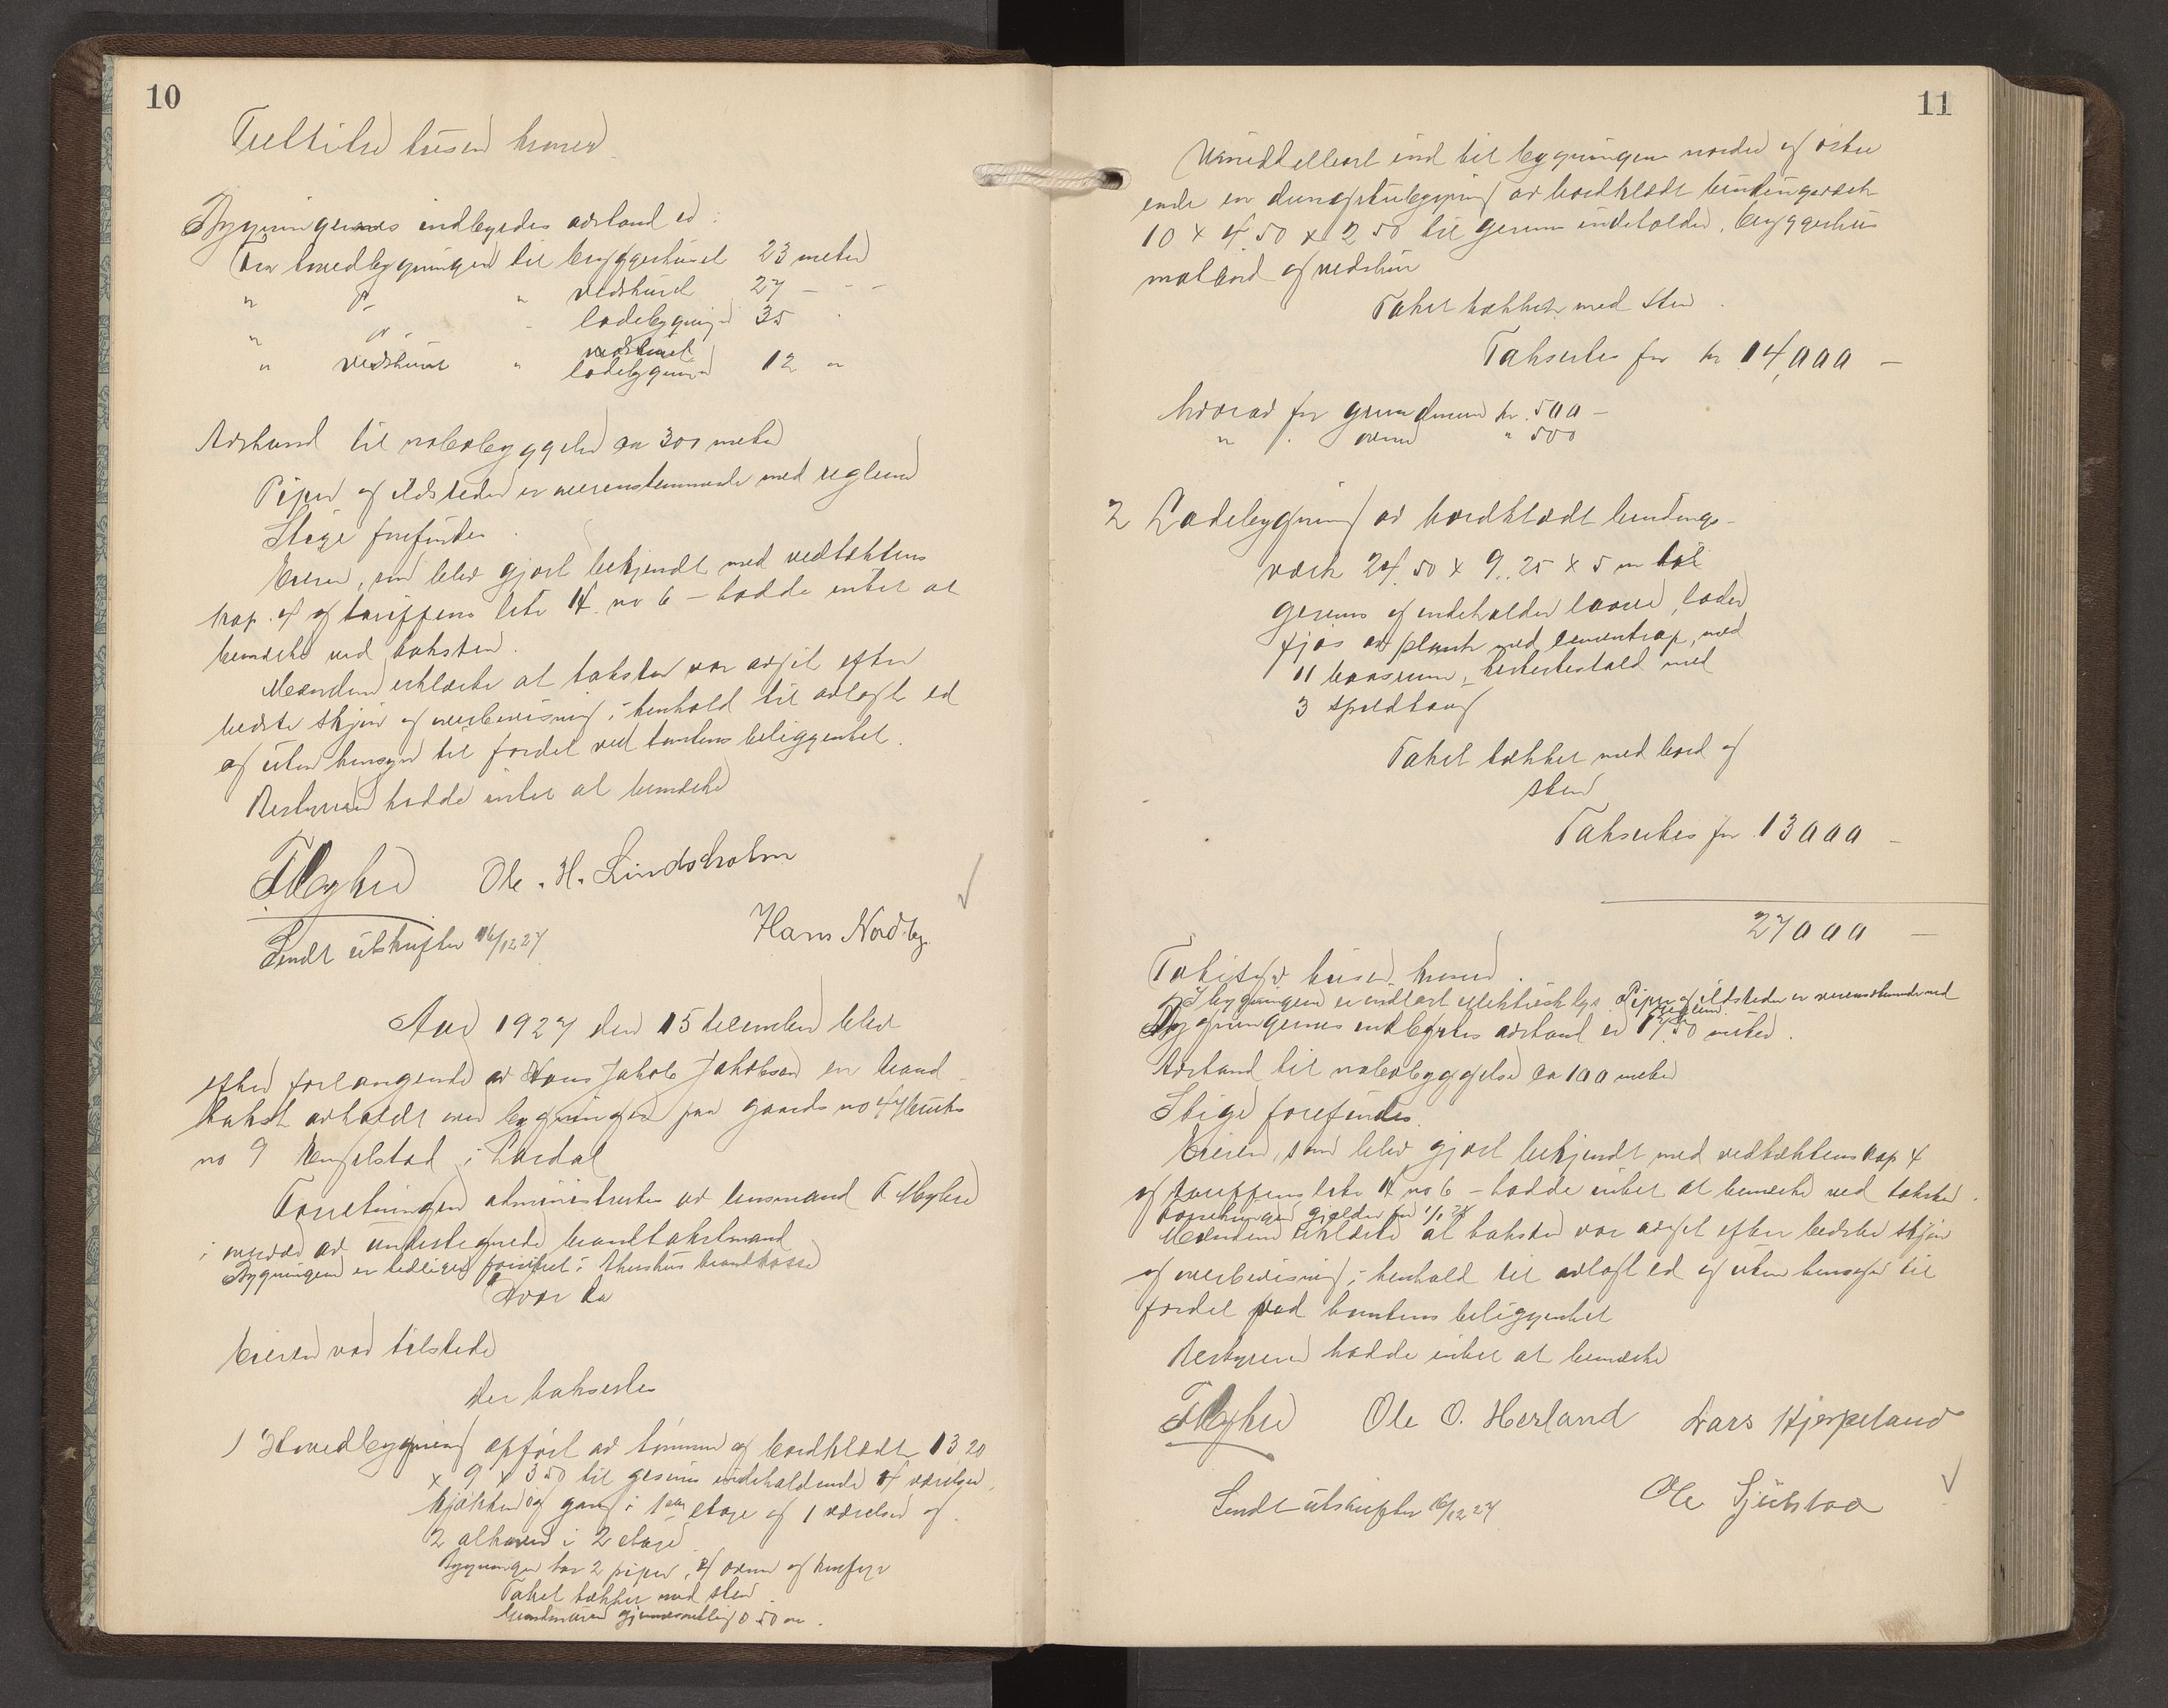 10
tusen kroner
Bygningernes indbyrdes avstand er:
Fra hovedbygningen til bryggerhuset 23 meter
" " " vedskuret 27 - - -
" " " ladebygningen 35
" vedskuret " ladebygningen 12 "
Avstand til nabobyggelse ca 300 meter
Piper og ildsteder er overensstemmende med reglene
Stige forfindes
Eieren, som blev gjort bekjendt med vedtektens
kap. 4 og tariffens litr 14 no 6 - hadde intet at
bemerke ved taksten.
Mændene erklærte at taksten var avgit efter
bedste skjøn og overbevisning i henhold til avlagt ed
og uten hensyn til fordel ved tomtens beliggenhet.
Bestyreren hadde intet at bemerke
TMyhre Ole. H. Lindsholm
Hans Nordby.
Sendt utskrifter 16/12 27
Aar 1927 den 15 december blev
efter forlangende av Hans Jakob Jakobsen en brand-
takst avholdt over bygningen paa gaards no 47 bruks
no 9 i Lardal
Forretningen administrertes av lensmand T. Myhre
i overvær av undertegnede brandtakstmænd
Bygningen er tidligere forsikret i Akershus brandkasse
Hvor da
Eieren var tilstede
Der taksertes
1 Hovedbygning opført av tømmer og bordklædt 13,20
x 9 x 3 50 til gesims indeholdende 4 værelser,
kjøkken og gang i 1ste etage og 1 værelse og
2 alkover i 2 etage
Bygningen har 2 piper, 4 ovne og komfyr
Taket tækket med sten
Grundmuren gjennemsnitlig 0.50 m.
11
Umiddelbart ind til bygningens nordre og østre
ende en av bordklædt bindingsverk
10 x 4.50 x 2 50 til gesims indeholder, bryggerhus
matbod og vedskur
Taket tækket med sten.
Takseres for kr 14,000 -
hvorav for grundmur kr. 500 -
" " ovner " 500
2 Ladebygning av bordklædt bindings-
verk 24.50 x 9.25 x 5 m til
gesims og indeholder laave, lader
fjøs av plank med cementtrap, med
11 baasrum, hestestald med
3 spiltaug
Taket tækket med bord og
sten
Takseres for 13000 -
27000 -
tusen kroner.
I bygningene er indlagt elektrisk lys. Piper og ildsteder er overensstemmende med
reglene
Bygningernes indbyrdes avstand er 17.50 meter.
Avstand til nabobyggelse ca 100 meter
Stige forefindes.
Eieren, som blev gjort bekjendt med vedtektens kap 4
og tariffens litr 14 no 6 - hadde intet at bemerke ved taksten.
Forretningen gjælder fra 1/1 28
Mændene erklærte at taksten var avgit efter bedste skjøn
og overbevisning i henhold til avlagt ed og uten hensyn til
fordel ved tomtens beliggenhet
Bestyreren hadde intet at bemerke
TMyhre Ole O. Herland Lars Hjerpeland
Sendt utskrifter 16/12 27 Ole Sjulstad